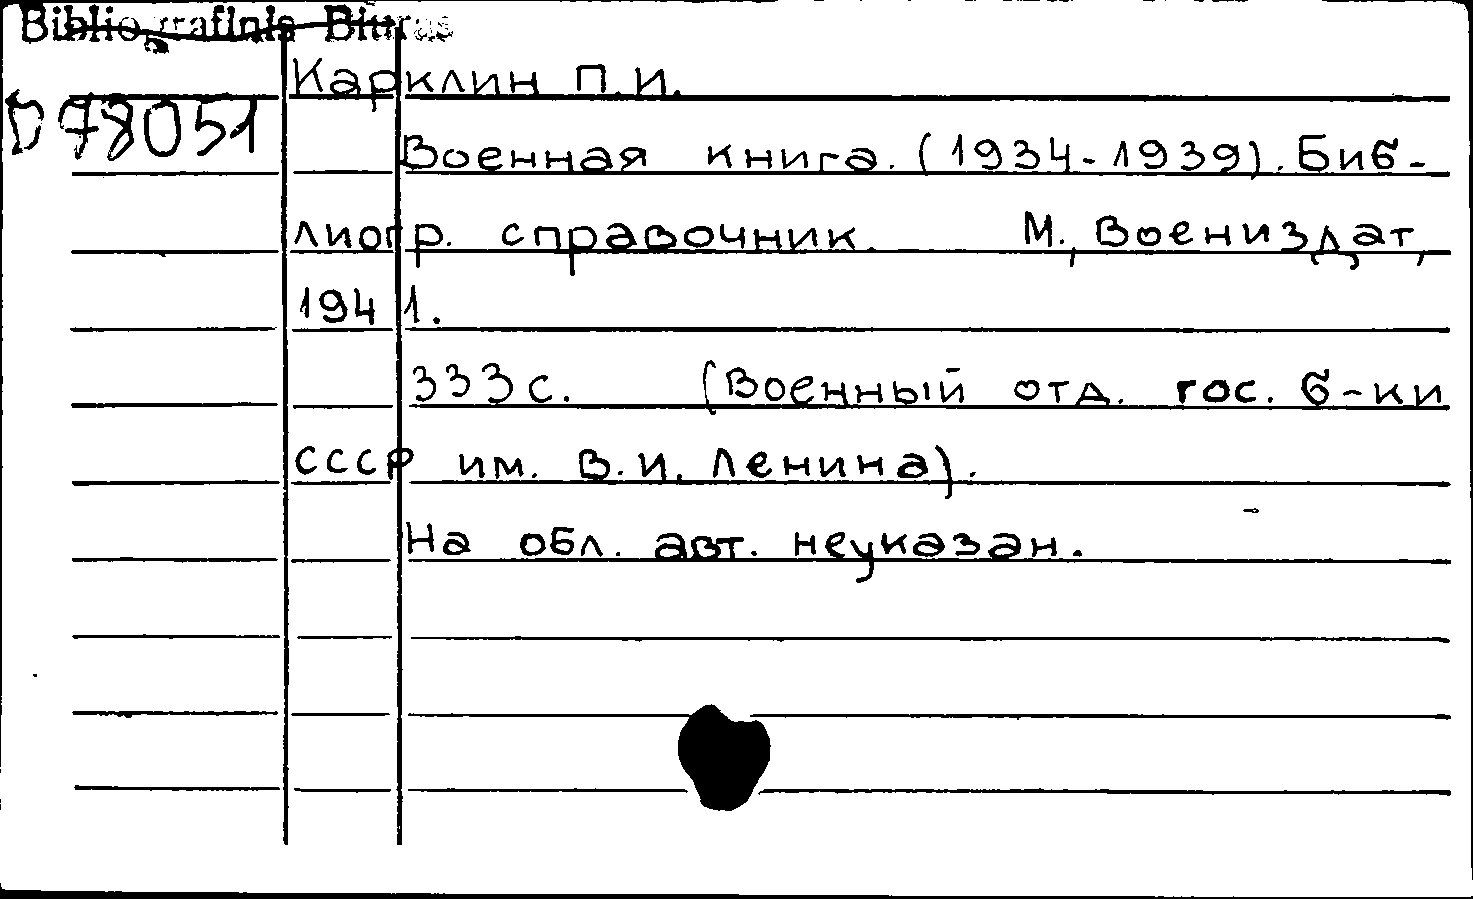 Bibliografinis Biuras
Карклин П.И.
D 78051
Военная книга. (1934-1939). Биб-
лиогр. справочник. М., Воениздат,
1941.
333 с. (Военный отд. гос. б-ки
СССР им. В.И. Ленина).
На обл. авт. неуказан.